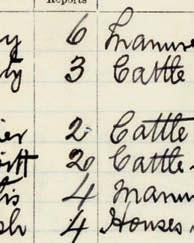 Reports
y 6 Manure
ty 3 Cattle
ier 2 Cattle
ott 2 Cattle.
tis 4 Manur
sh 4 Houses